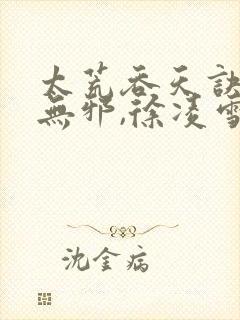 太荒吞天訣
無邪,徐凌雪
沈金病